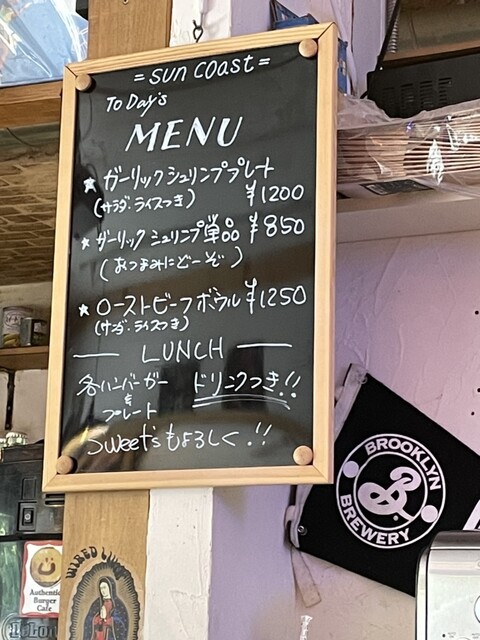 =SUN COAST=
ToDay's
MENU
★ ガーリックシュリンププレート
(サラダ・ライスつき) ¥1200
★ ガーリックシュリンプ単品 ¥850
(おつまみにどーぞ)
★ ローストビーフボウル ¥1250
(サラダ・ライスつき)
LUNCH
各ハンバーガー ドリンクつき!!
&
プレート
Sweet'sもよろしく!!
BROOKLYN
B
BREWERY
WIRED
Authentic
Burger
Cafe